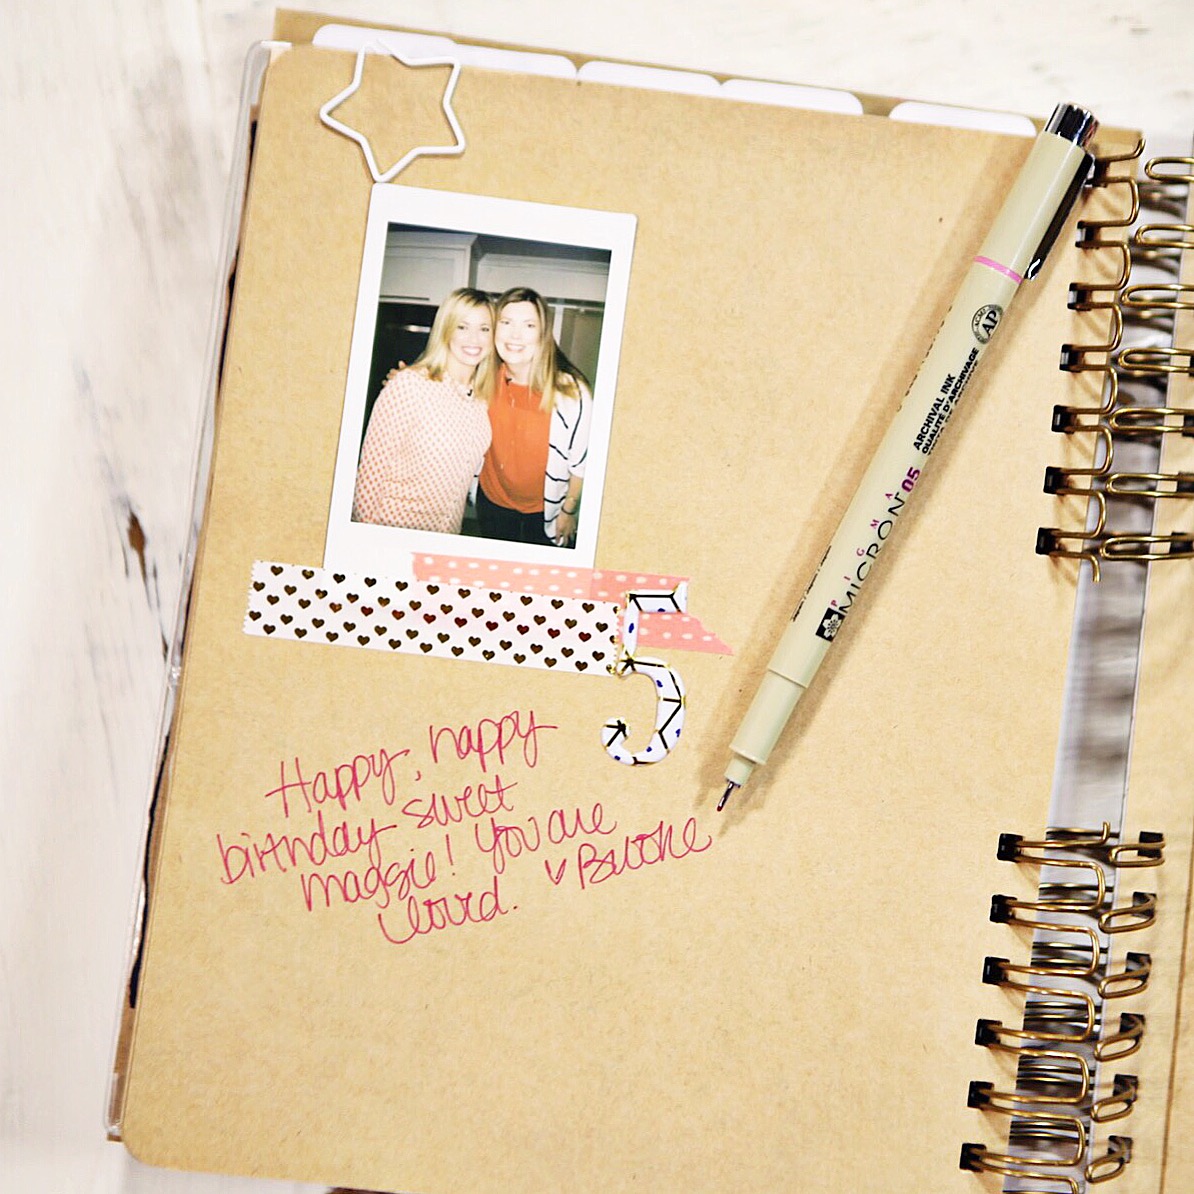 5
Happy, happy
birthday sweet
maggie! You are
loved. ♥Brooke
PIGMA
MICRON 05
ARCHIVAL INK
QUALITÉ D'ARCHIVAGE
AP